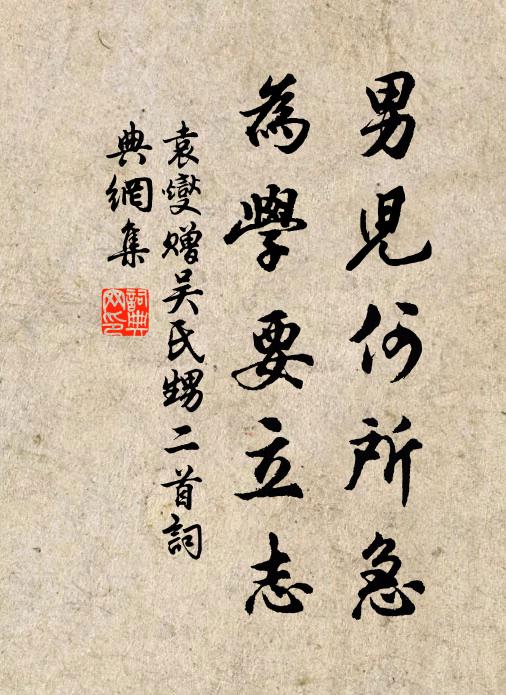 男兒何所急
為學要立志
袁燮贈吳氏甥二首詞
典網集
詞典
網印